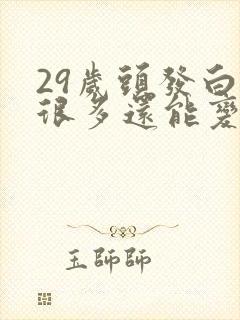 29歲頭發白
很多還能變
王師師